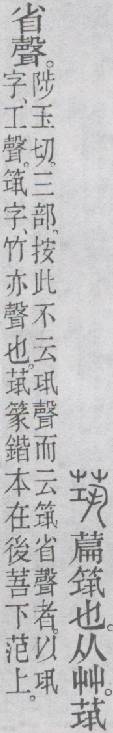 茿 萹筑也。从艸。茿
省聲。
陟玉切。三部。按此不云巩聲而云筑省聲者。以巩
字、工聲。筑字、竹亦聲也。茿篆鍇本在後萻下范上。